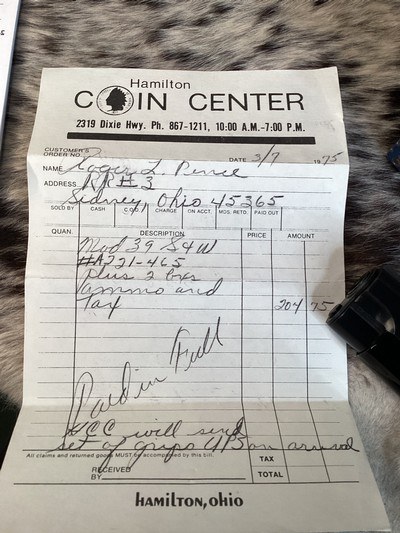 Hamilton
COIN CENTER
2319 Dixie Hwy. Ph. 867-1211, 10:00 A.M.-7:00 P.M.
CUSTOMER'S
ORDER NO. DATE 3/7 1975
NAME Roger L. Pence
ADDRESS RR#3
Sidney, Ohio 45365
SOLD BY CASH C.O.D. CHARGE ON ACCT. MDS. RETD. PAID OUT
QUAN. DESCRIPTION PRICE AMOUNT
Mod 39 S&W
#A221-465
Plus 2 bxs
ammo and
Tax 204 75
Paid in Full
HCC will send
set of grips on arrival
All claims and returned goods MUST be accompanied by this bill.
TAX
RECEIVED
BY
TOTAL
HAMILTON, OHIO